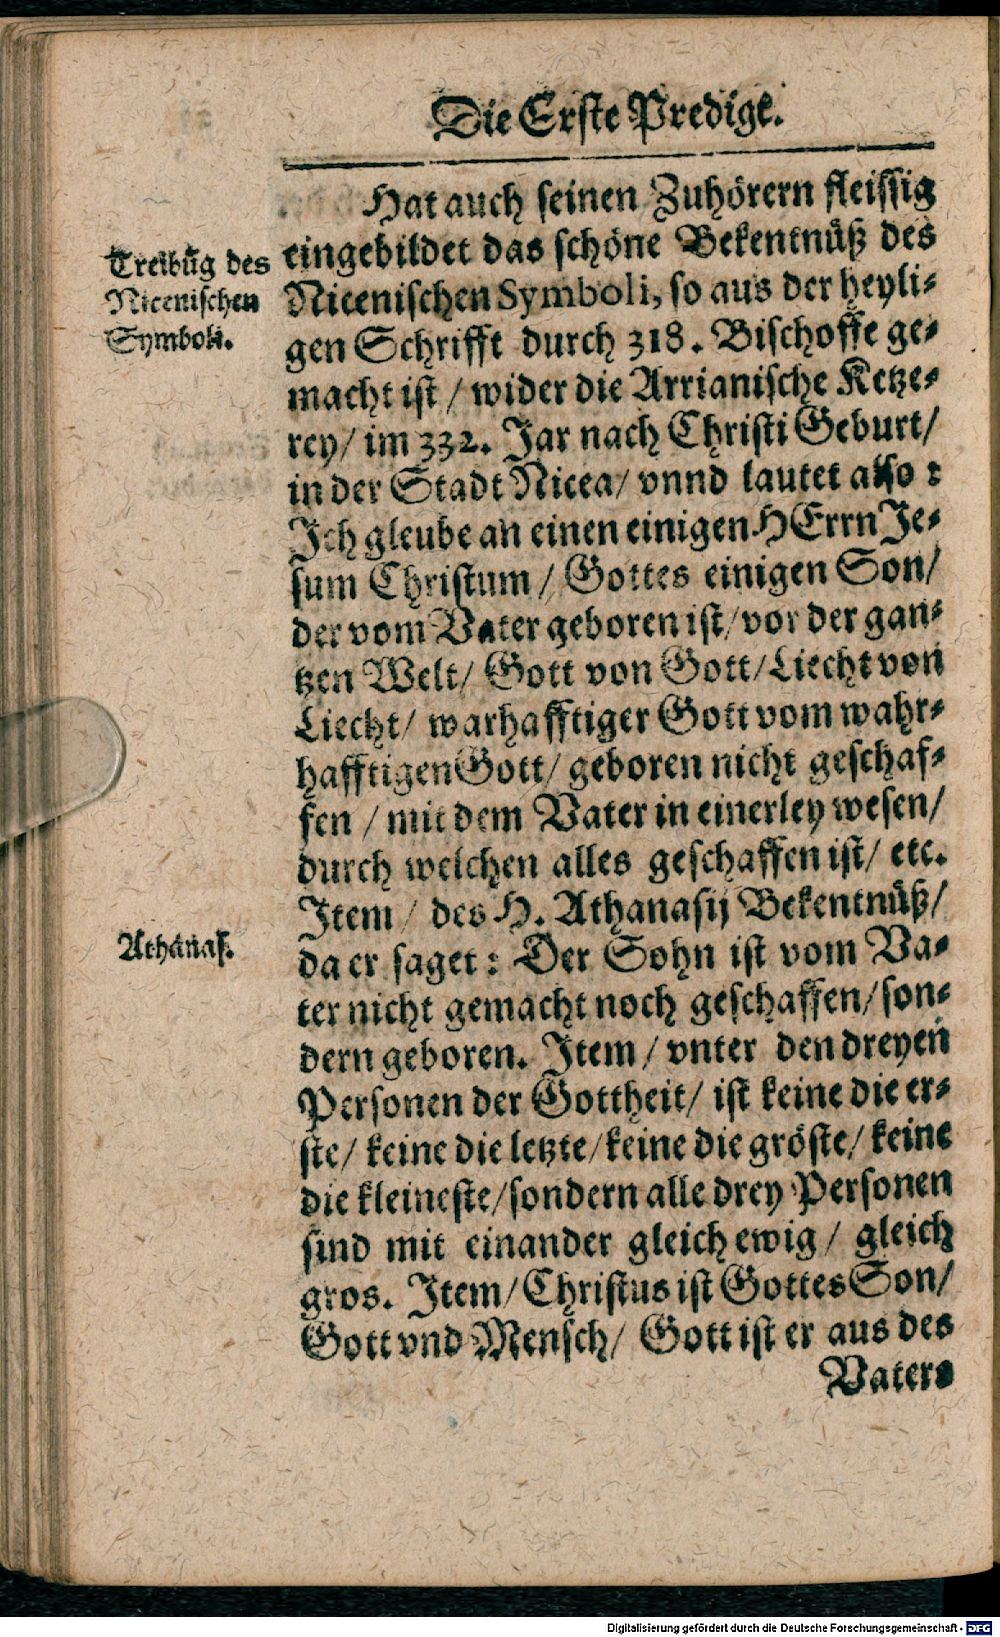 Die Erste Predigt.
Hat auch seinen Zuhörern fleissig
eingebildet das schöne Bekentnüß des
Nicenischen Symboli, so aus der heyli-
gen Schrifft durch 318. Bischoffe ge-
macht ist / wider die Arrianische Ketze-
rey / im 332. Jar nach Christi Geburt /
in der Stadt Nicea / vnnd lautet also:
Jch gleube an einen einigen HErrn Je-
sum Christum / Gottes einigen Son /
der vom Vater geboren ist / vor der gan-
tzen Welt / Gott von Gott / Liecht von
Liecht / warhafftiger Gott vom wahr-
hafftigen Gott / geboren nicht geschaf-
fen / mit dem Vater in einerley wesen /
durch welchen alles geschaffen ist / etc.
Jtem / des H. Athanasij Bekentnüß /
da er saget: Der Sohn ist vom Va-
ter nicht gemacht noch geschaffen / son-
dern geboren. Jtem / vnter den dreyen
Personen der Gottheit / ist keine die er-
ste / keine die letzte / keine die gröste / keine
die kleineste / sondern alle drey Personen
sind mit einander gleich ewig / gleich
gros. Jtem / Christus ist Gottes Son /
Gott vnd Mensch / Gott ist er aus des
Vaters
Treibũg des
Nicenischen
Symboli.
Athanas.
Digitalisierung gefördert durch die Deutsche Forschungsgemeinschaft - DFG